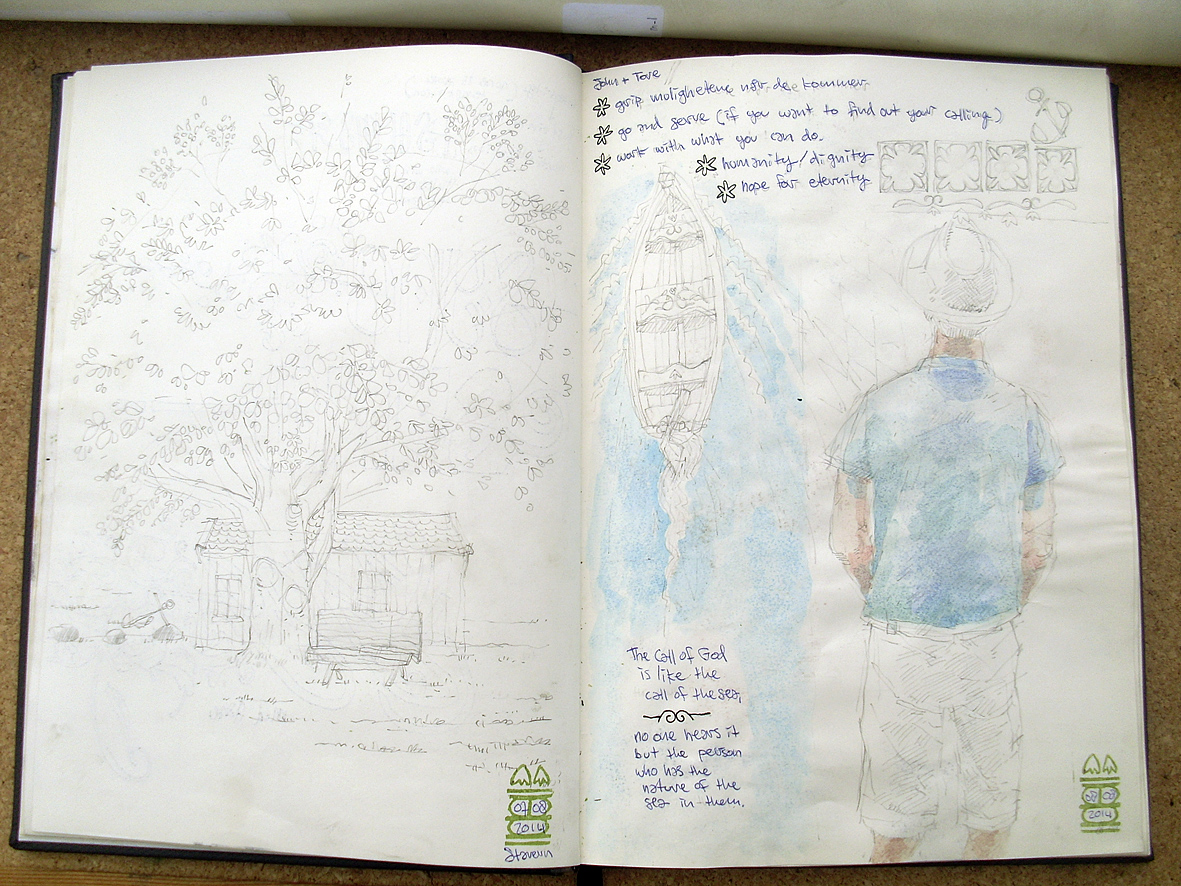 John + Tove
grip mulighetene når de kommer
go and serve (if you want to find out your calling)
work with what you can do.
humanity/dignity
hope for eternity
The call of God
is like the
call of the sea,
no one hears it
but the person
who has the
nature of the
sea in them.
07 08
2014
Stavern
08 08
2014